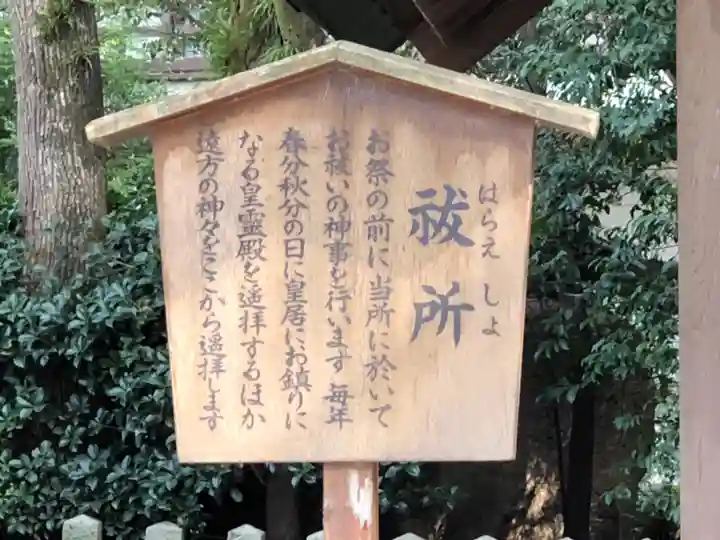 はらえ しよ
祓所
お祭の前に当所に於いて
お祓いの神事を行います 毎年
春分秋分の日に皇居にお鎮りに
なる皇霊殿を遥拝するほか
遠方の神々をここから遥拝します